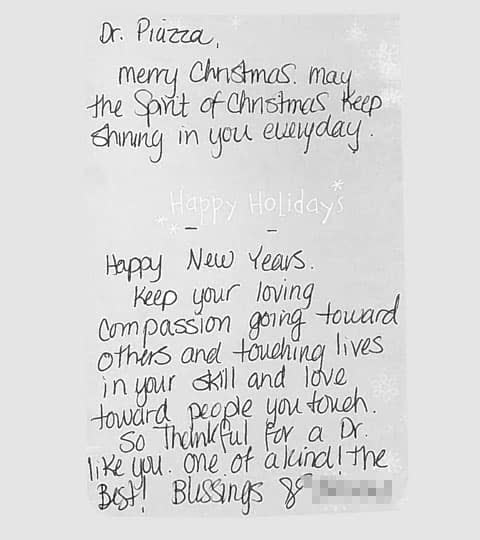 Dr. Piazza,
merry Christmas. may
the Spirit of Christmas Keep
Shining in you everyday.
Happy Holidays
Happy New Years.
Keep your loving
compassion going toward
others and touching lives
in your skill and love
toward people you touch.
So Thankful for a Dr.
like you. One of a kind! the
Best! Blessings